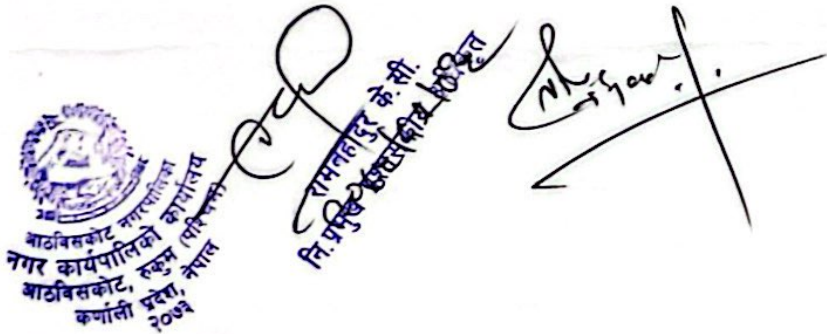 आठबिसकोट नगरपालिका
नगर कार्यपालिकाको कार्यालय
आठबिसकोट, रुकुम (पश्चिम)
कर्णाली प्रदेश, नेपाल
२०७३
रामबहादुर के.सी.
नि.प्रमुख प्रशासकीय अधिकृत